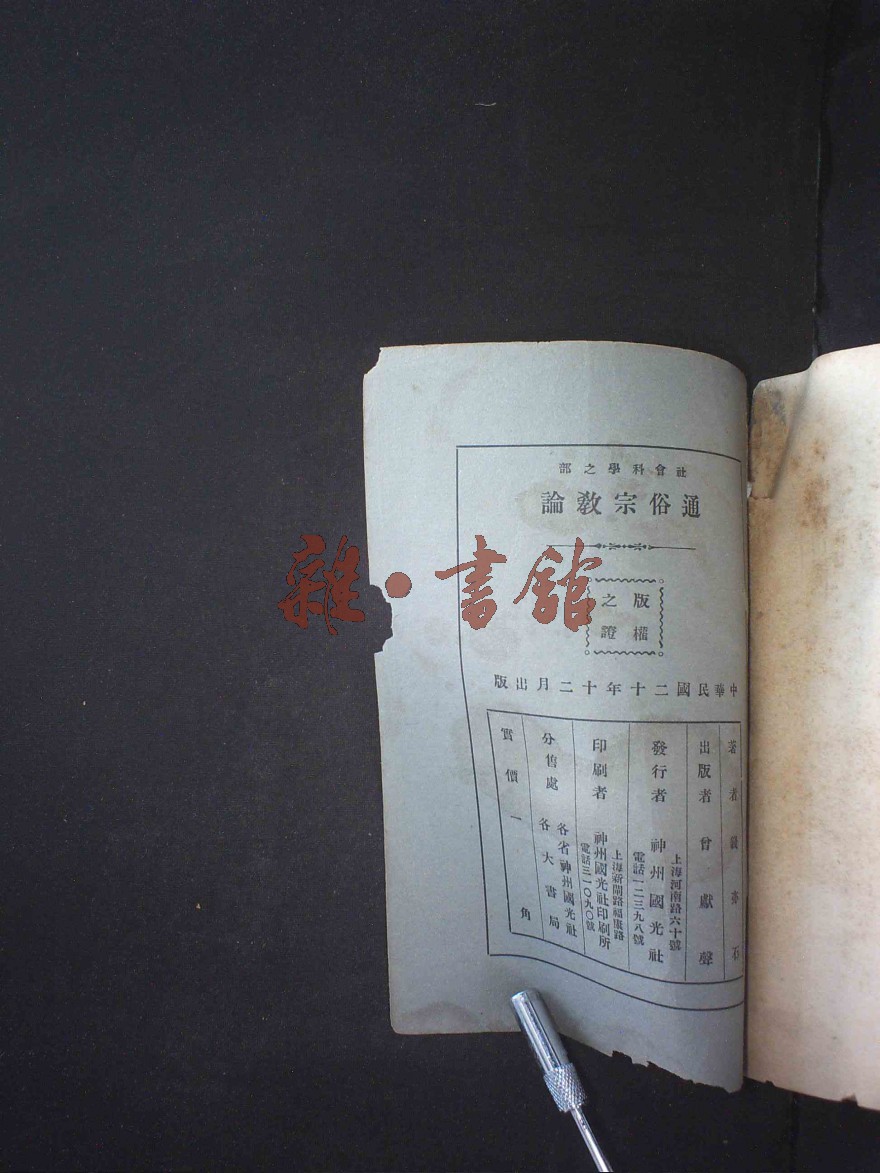 社會科學之部
通俗宗教論
版權
之證
中華民國二十年十二月出版
著者 錢亦石
出版者 曾獻聲
發行者 神州國光社
上海河南路六十號
電話一二三九八號
印刷者 神州國光社印刷所
上海新閘路福康路
電話三一〇九〇號
分售處 各省神州國光社
各大書局
實價一角
雜·書館